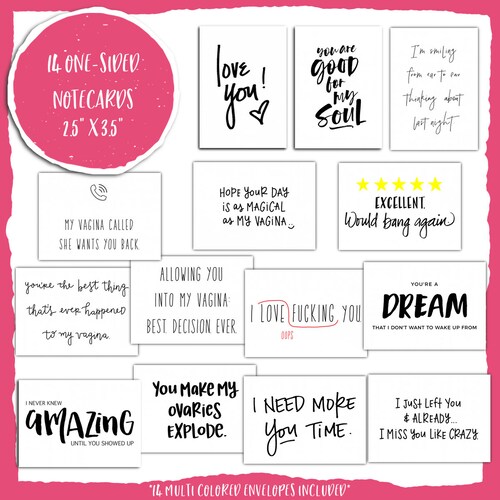 14 ONE-SIDED
NOTECARDS
2.5" X 3.5"
love
you!
you are
GOOD
for
my
SOUL
I'm smiling
from ear to ear
thinking about
last night.
MY VAGINA CALLED
SHE WANTS YOU BACK
HOPE YOUR DAY
IS AS MAGICAL
AS MY VAGINA
EXCELLENT.
Would bang again
you're the best thing
that's ever happened
to my vagina.
ALLOWING YOU
INTO MY VAGINA:
BEST DECISION EVER.
I LOVE FUCKING YOU
OOPS
YOU'RE A
DREAM
THAT I DON'T WANT TO WAKE UP FROM
I NEVER KNEW
AMAZING
UNTIL YOU SHOWED UP
YOU MAKE MY
OVARIES
EXPLODE.
I NEED MORE
YOU TIME.
I JUST LEFT YOU
& ALREADY...
I MISS YOU LIKE CRAZY.
*14 MULTI COLORED ENVELOPES INCLUDED*